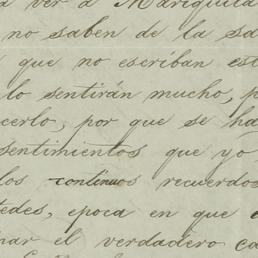 a ver a Mariquita
no saben de la sa
que no escriban est
lo sentirán mucho, p
cerlo, por que se ha
sentimientos que yo
los continuos recuerdos
tedes, epoca en que
nar el verdadero ca